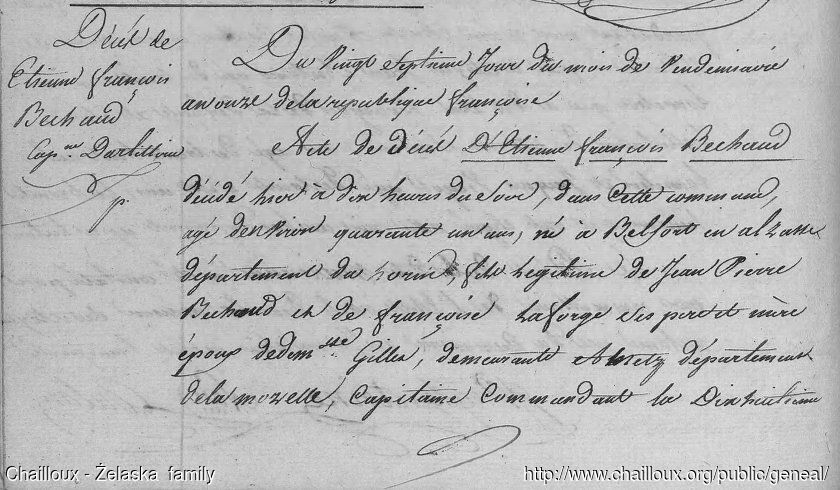 Décès de
Etienne françois
Bechaud
Cap.ne Dartillerie
Du Vingt Septieme Jour du mois de Vendemiaire
an onze de la republique françoise
Acte de décès D'Etienne françois Bechaud
décédé hier à dix heures du soir, dans cette commune,
agé denviron quarante un ans, né à Belfort en alzasse
département du horin, fils legitime de Jean Pierre
Bechaud et de françoise Laforge ses pere et mère
époux de dem.lle Gilles, demeurante à Metz département
de la mozelle, Capitaine Commandant la Dixhuitieme
Chailloux - Żelaska family
http://www.chailloux.org/public/geneal/